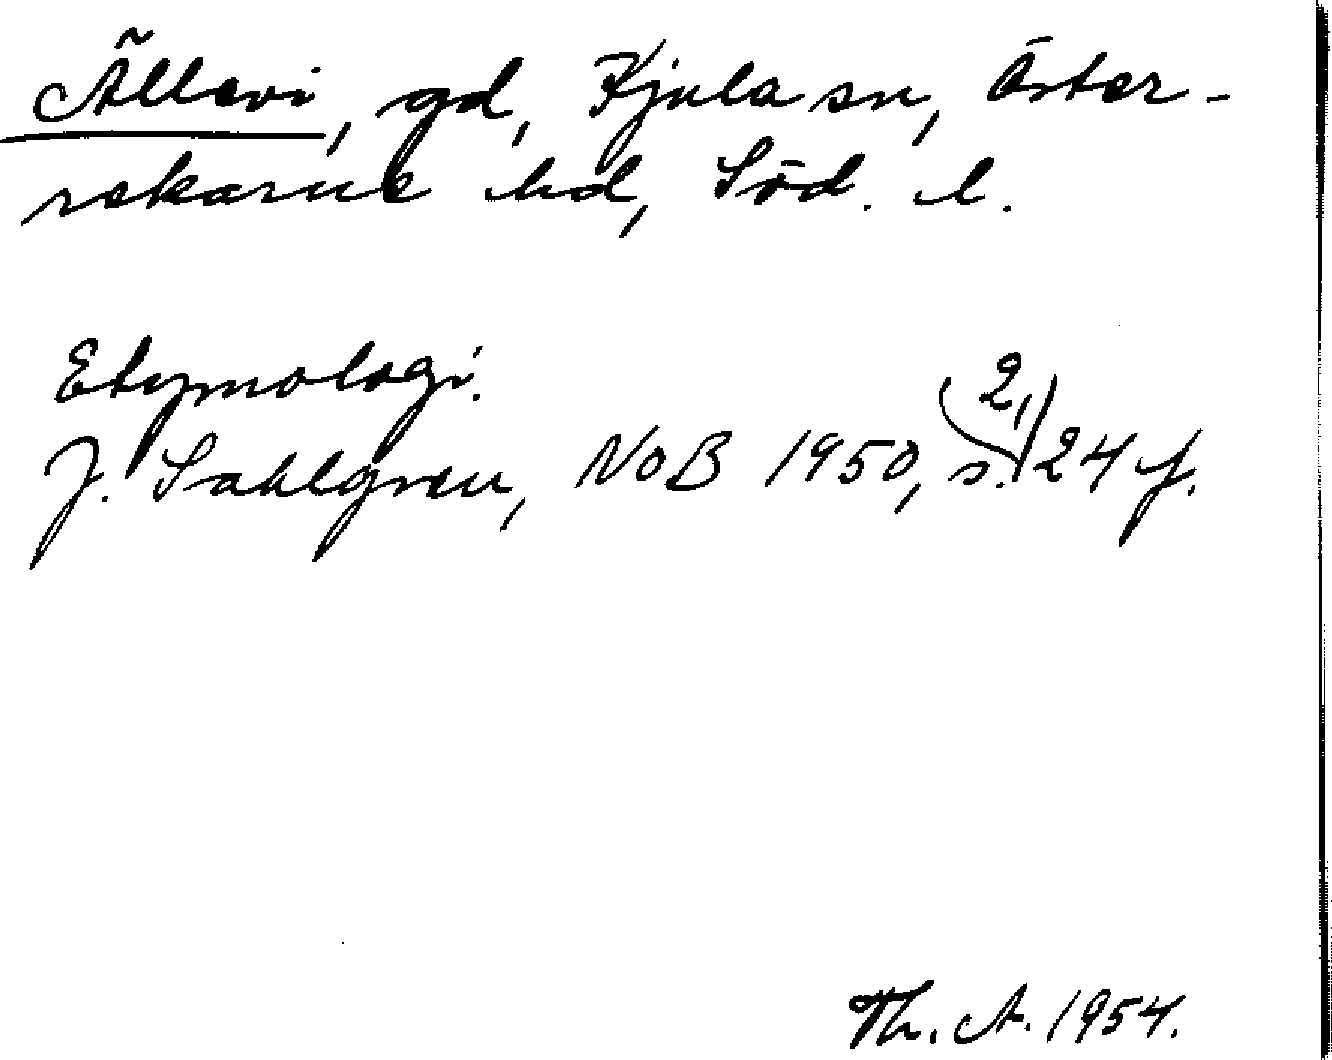 Ällevi, gd, Kjula sn, Öster-
rekarne hd, Söd. l.
Etymologi.
J. Sahlgren, NoB 1950, 2, s. 24 f.
Th. A. 1954.